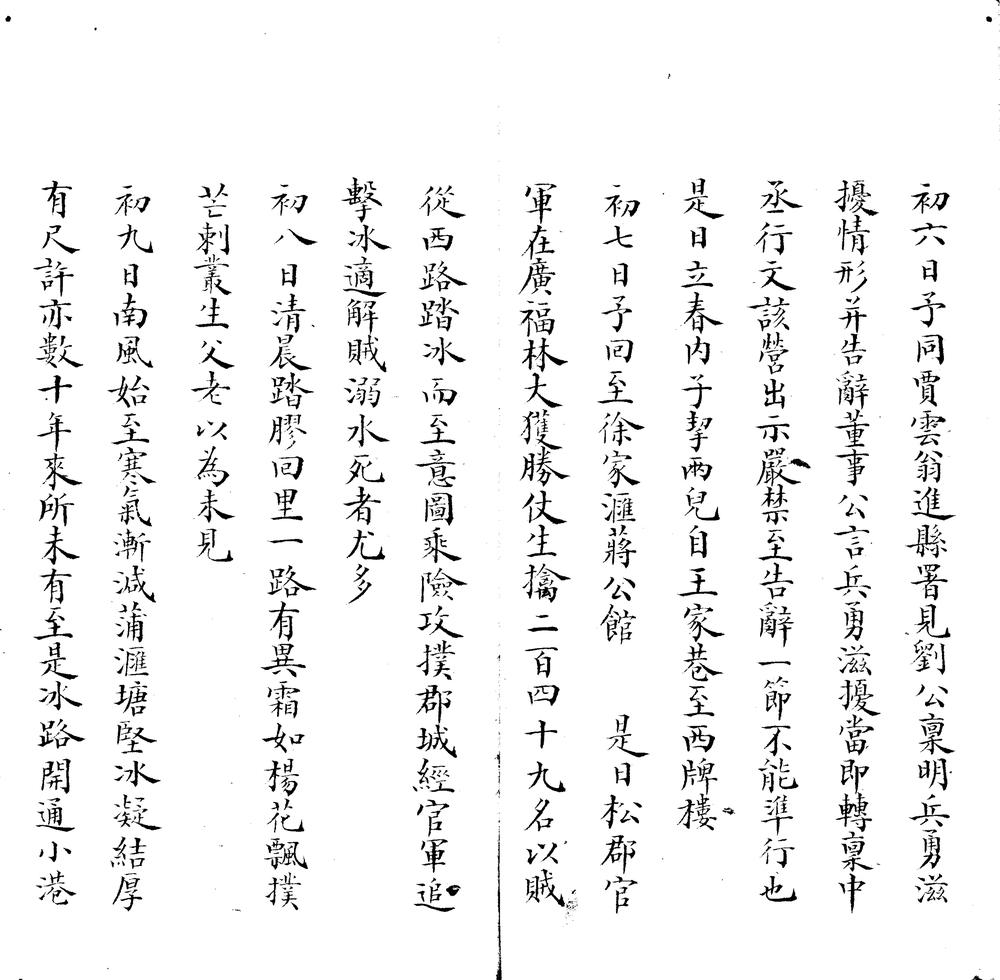 初六日予同賈雲翁進縣署見劉公稟明兵勇滋
擾情形并告辭董事公言兵勇滋擾當即轉稟中
丞行文該營出示嚴禁至告辭一節不能準行也
是日立春內子挈兩兒自王家巷至西牌樓
初七日予回至徐家滙蔣公館　是日松郡官
軍在廣福林大獲勝仗生擒二百四十九名以賊
從西路踏冰而至意圖乘險攻撲郡城經官軍追
擊冰適解賊溺水死者尤多
初八日清晨踏膠回里一路有異霜如楊花飄撲
芒刺叢生父老以為未見
初九日南風始至寒氣漸減蒲滙塘堅冰凝結厚
有尺許亦數十年來所未有至是冰路開通小港